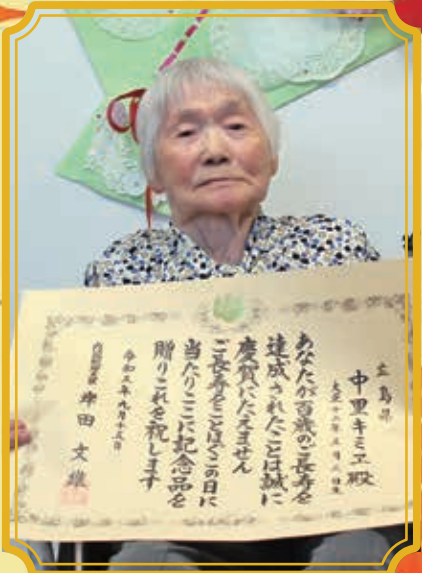 広島県
中里キミヱ殿
あなたが百歳のご長寿を
達成されたことは誠に
慶賀にたえません
ご長寿をことほぐこの日に
当たりここに記念品を
贈りこれを祝します
令和五年九月十五日
内閣総理大臣 岸田文雄